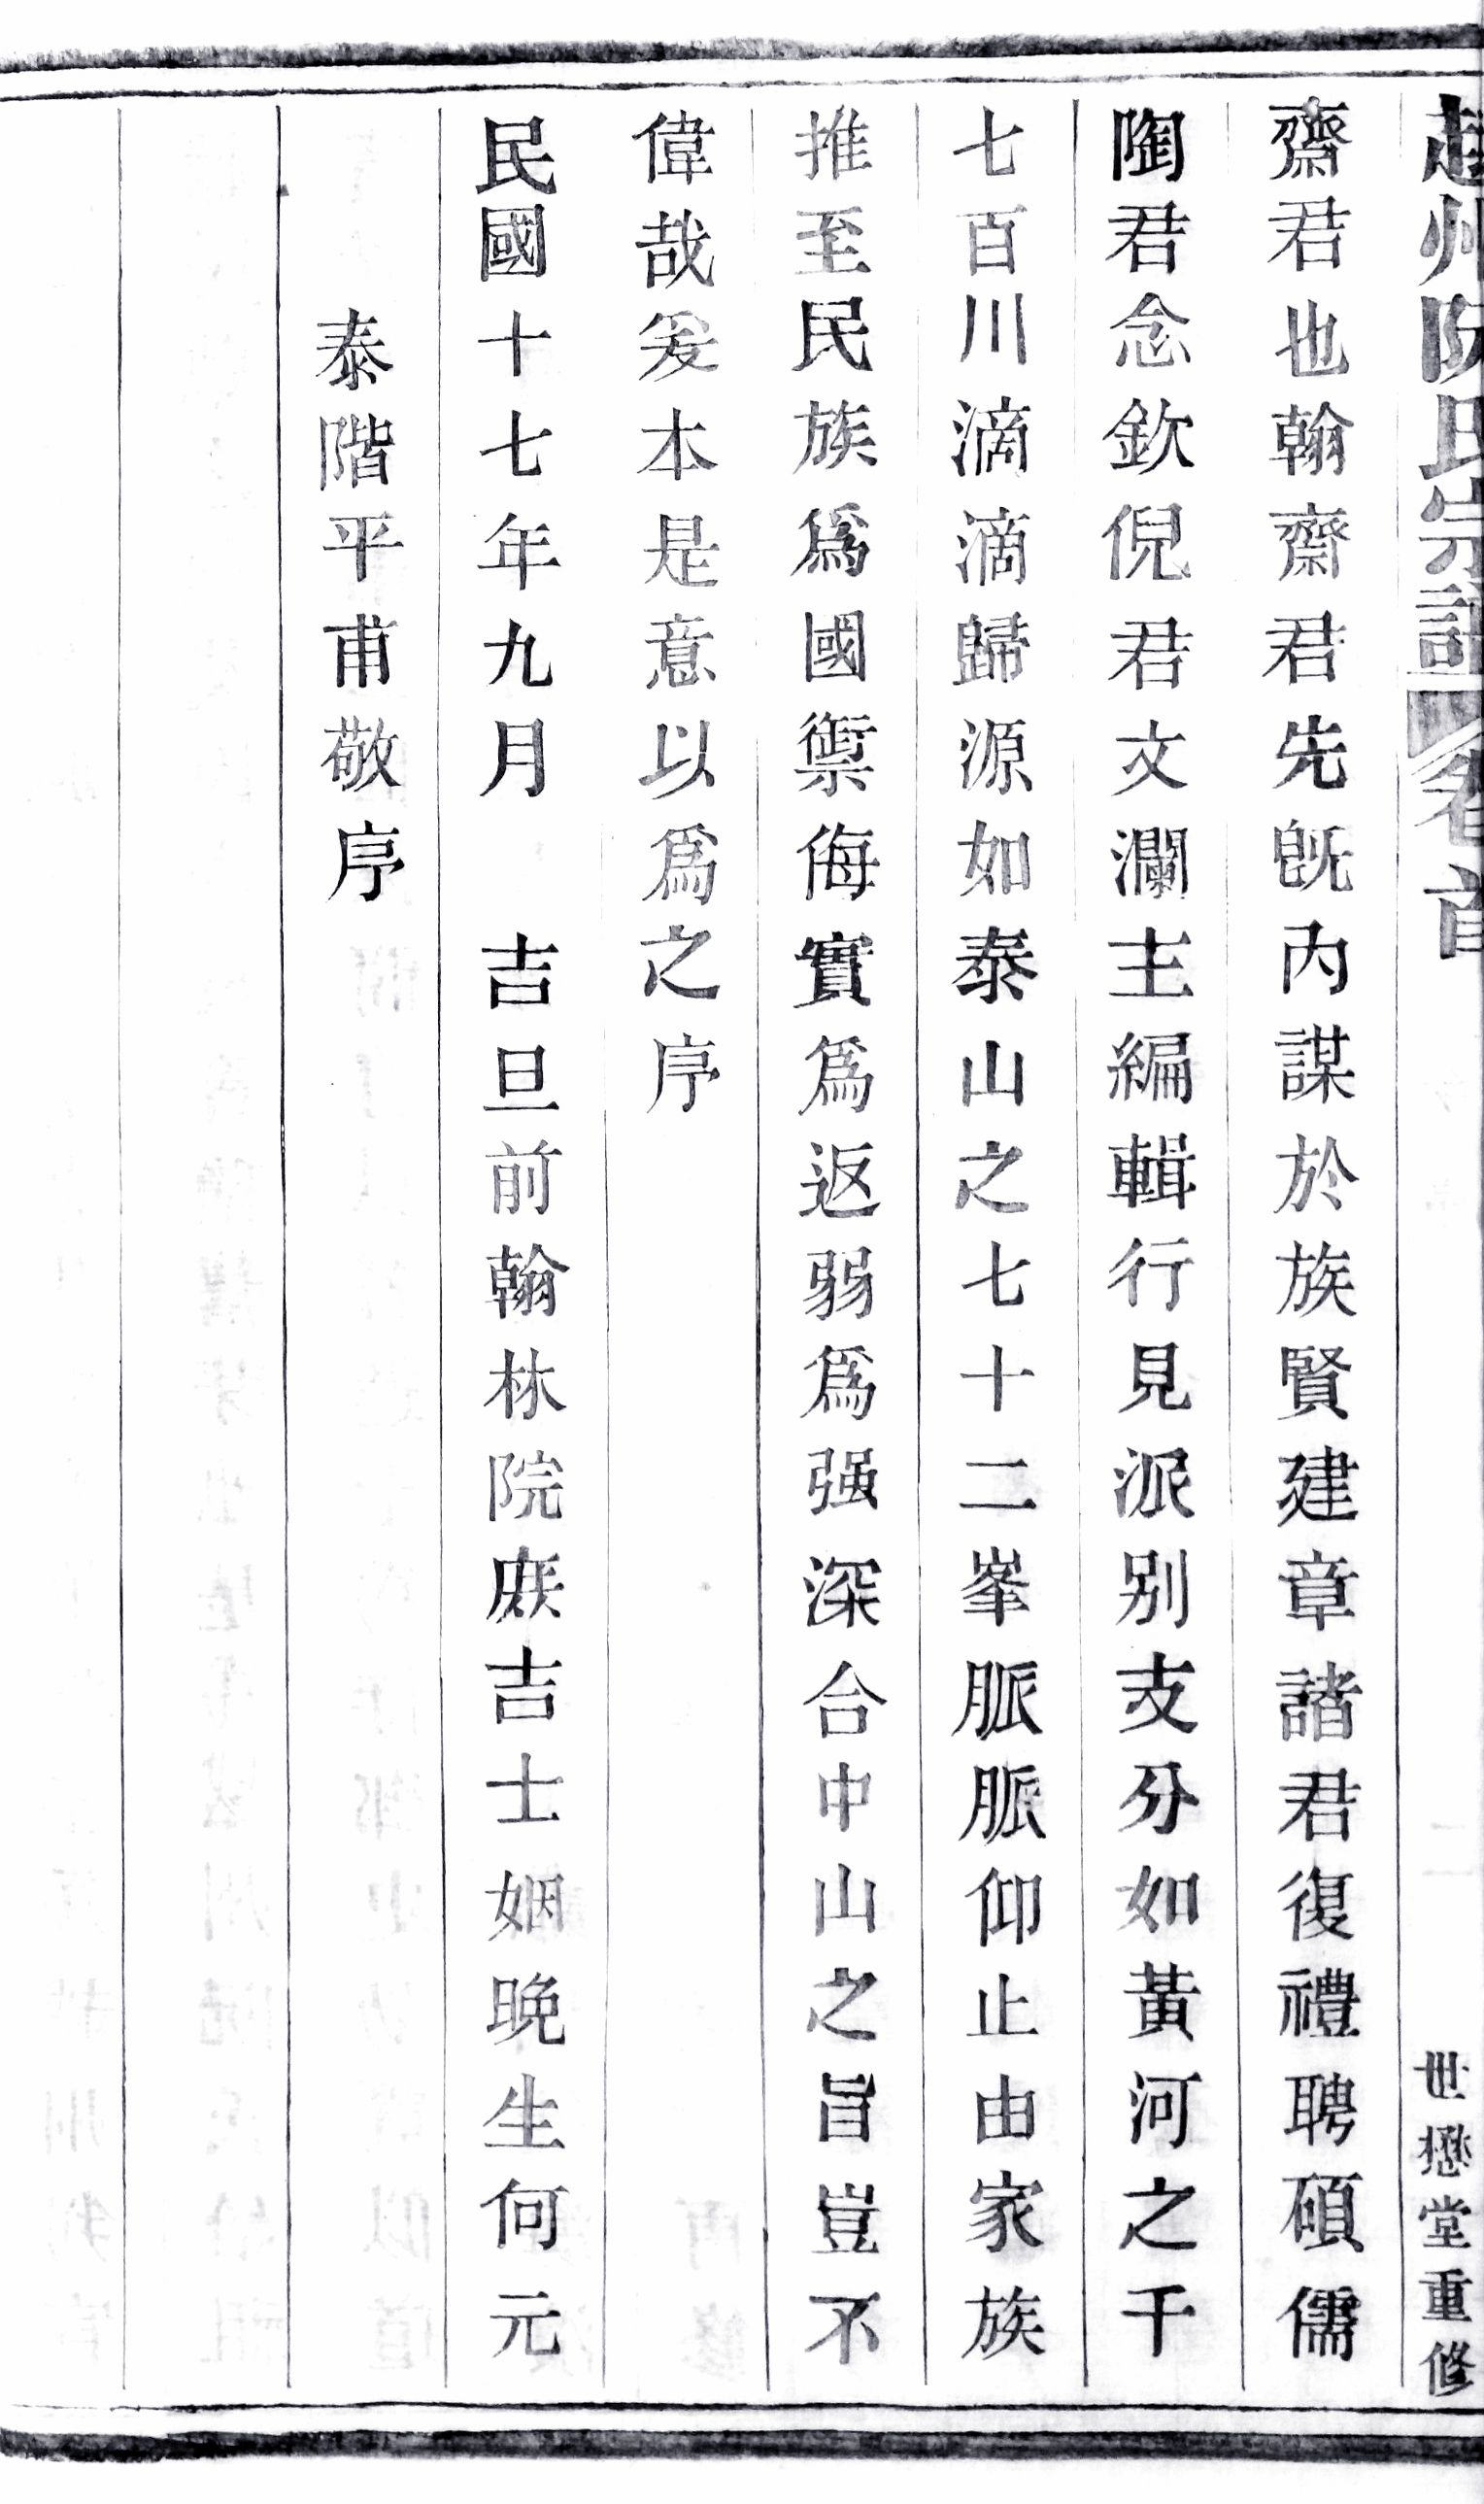 趙州阮氏宗譜 卷首 二 世懋堂重修
齋君也翰齋君先旣內謀於族賢建章諸君復禮聘碩儒
陶君念欽倪君文瀾主編輯行見派別支分如黃河之千
七百川滴滴歸源如泰山之七十二峯脈脈仰止由家族
推至民族爲國禦侮實爲返弱爲强深合中山之旨豈不
偉哉爰本是意以爲之序
民國十七年九月 吉旦前翰林院庶吉士姻晚生何元
泰階平甫敬序